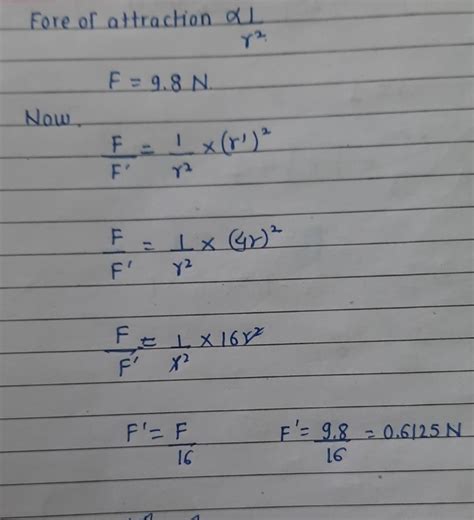 Fore of attraction ∝ 1/r²
F = 9.8 N.
Now.
F/F' = 1/r² × (r')²
F/F' = 1/r² × (4r)²
F/F' = 1/r² × 16r²
F' = F/16 F' = 9.8/16 = 0.6125 N